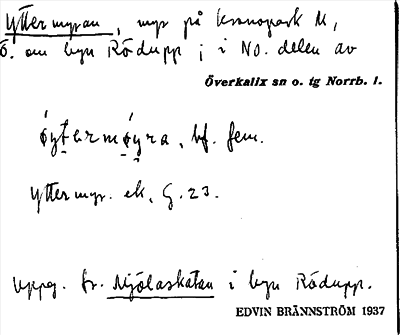 Yttermyran, myr på kronopark M,
Ö. om byn Rödupp i NO. delen av
Överkalix sn o. tg Norrb. l.
óytermóyra, bf. fem.
Yttermyr. ek. G. 23.
Uppg. fr. Mjölaskatan i byn Rödupp.
EDVIN BRÄNNSTRÖM 1937